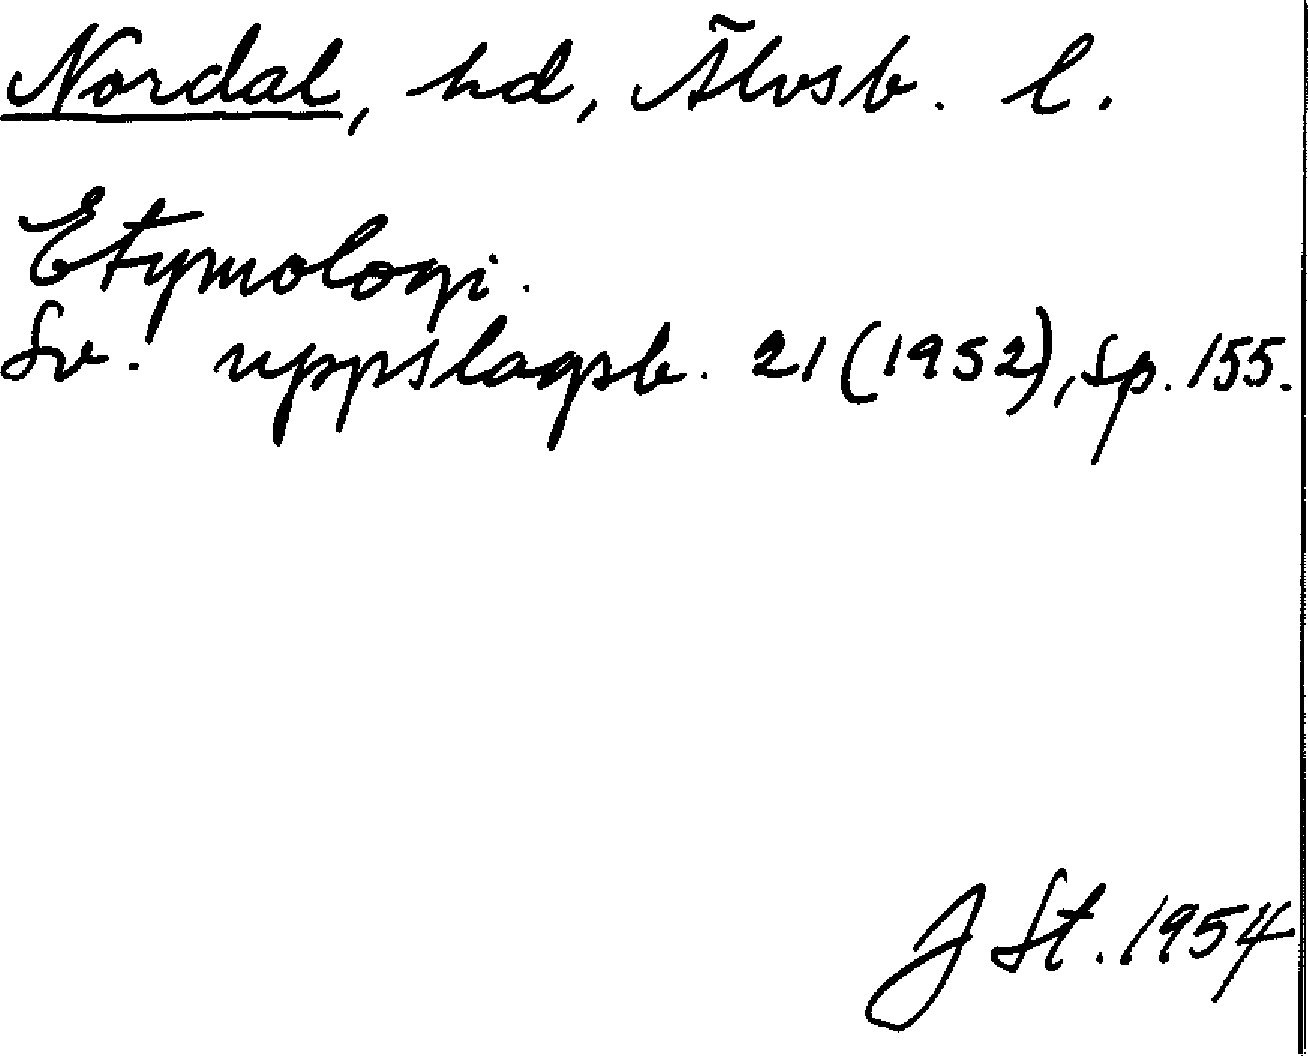 Nordal, hd, Älvsb. l.
Etymologi.
Sv. uppslagsb. 21 (1952), sp. 155.
J St. 1954